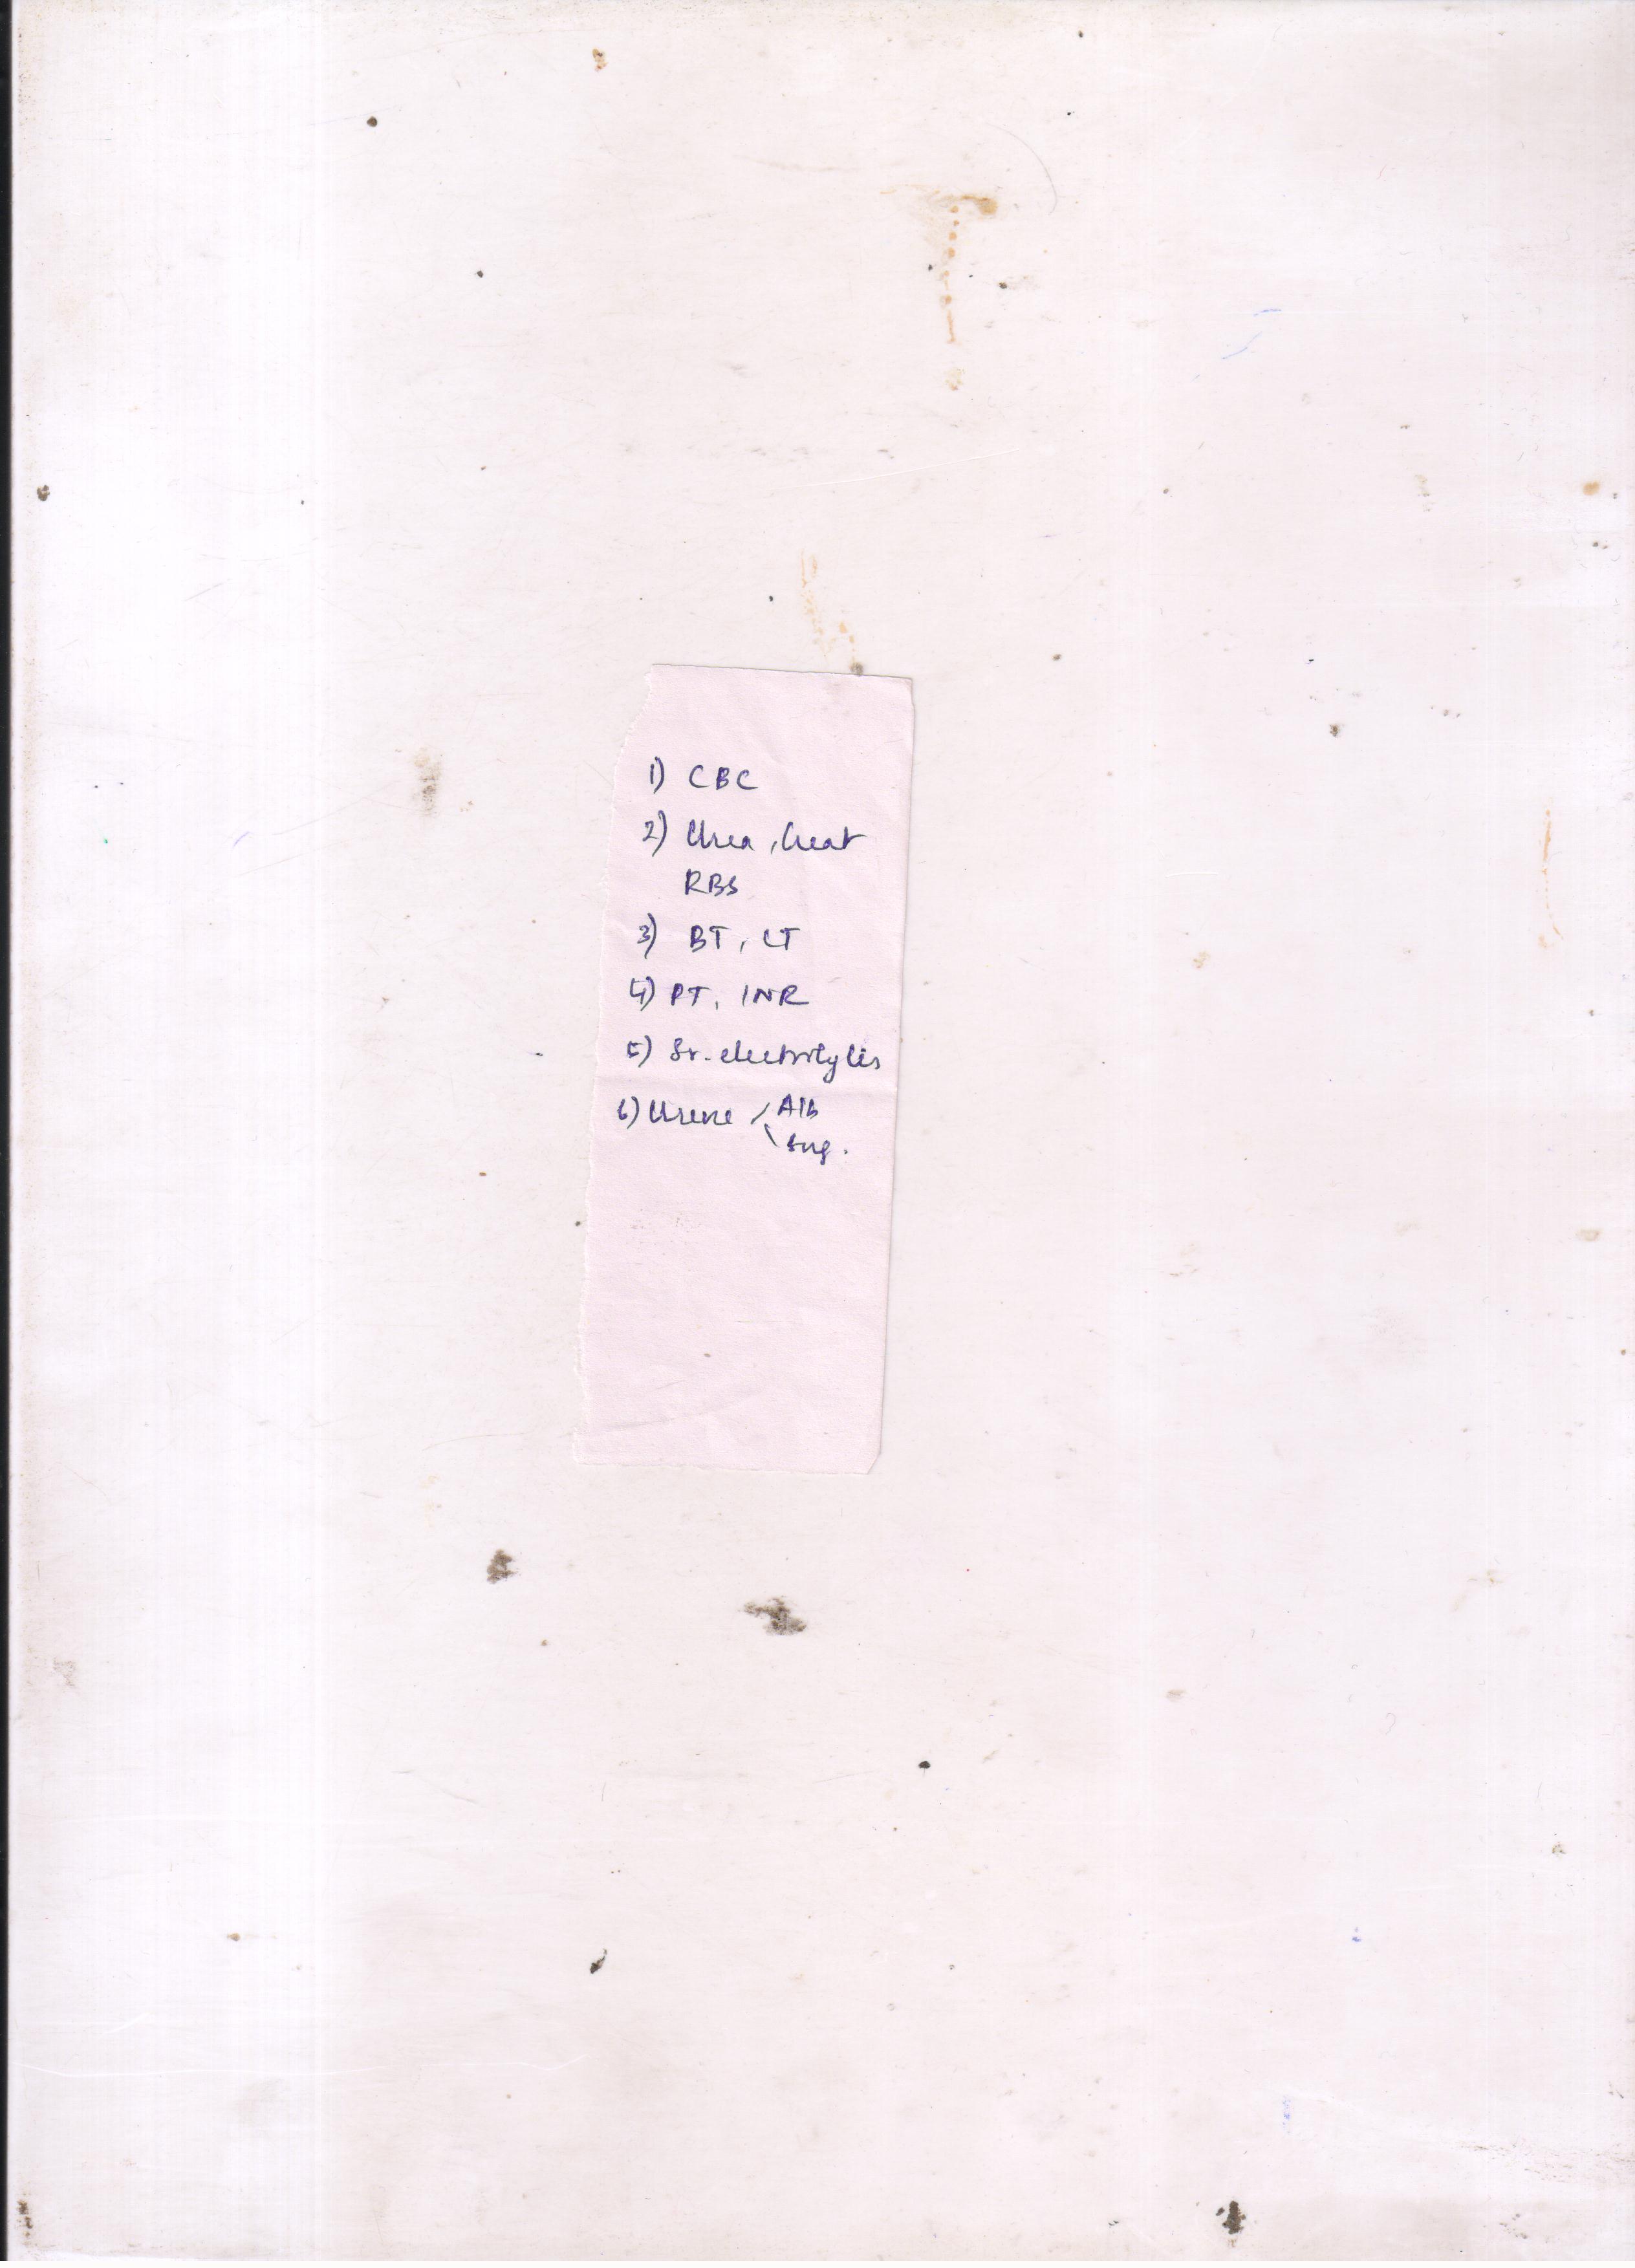 1) CBC
2) Urea, Creat
RBS
3) BT, CT
4) PT, INR
5) Sr. electrolytes
6) Urine Alb
Sug.